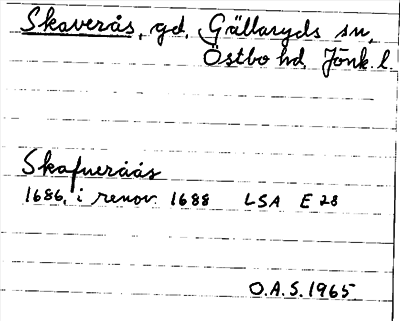 Skaverås, gd, Gällaryds sn,
Östbo hd, Jönk. l.
Skafueråås
1686, i renov. 1688 LSA E 28
O.A.S. 1965